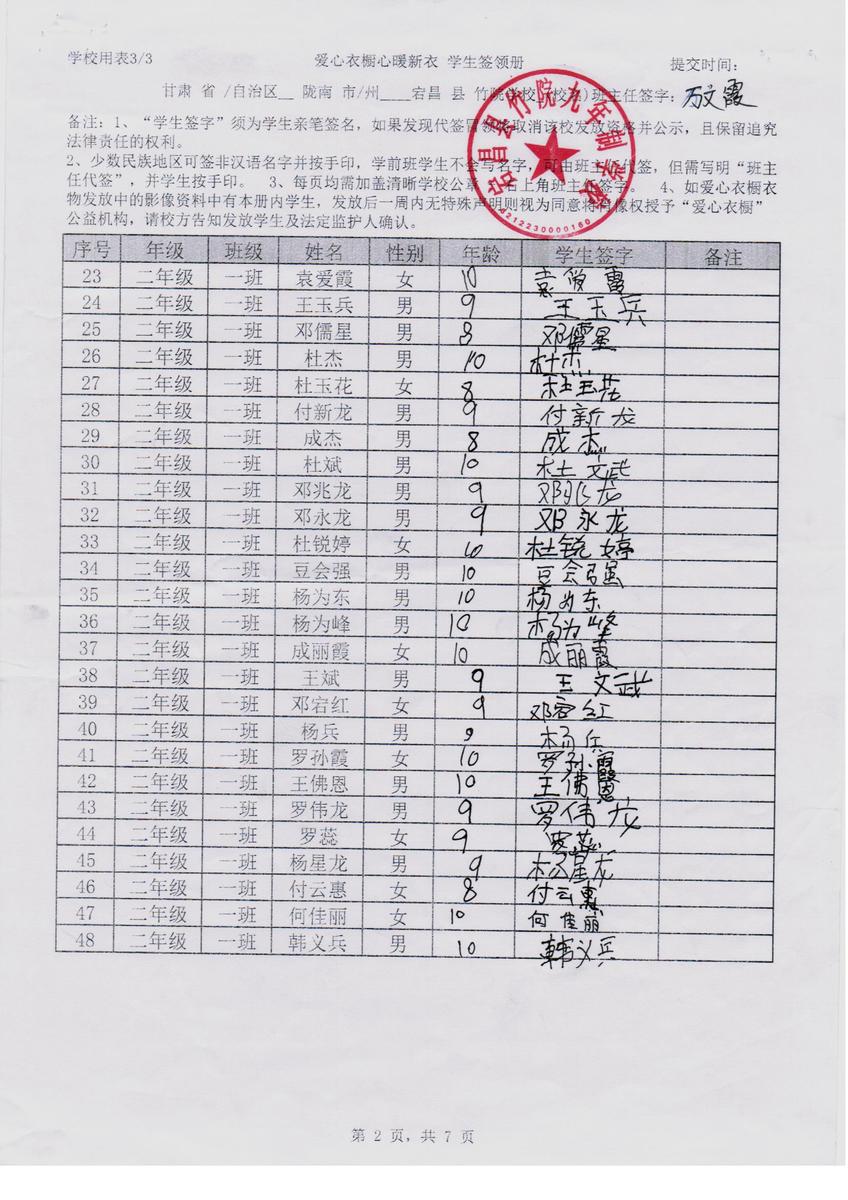 学校用表3/3 爱心衣橱心暖新衣 学生签领册 提交时间:
甘肃 省 /自治区__ 陇南 市/州____宕昌 县 竹院学校(校名)班主任签字: 万文霞
备注: 1、“学生签字”须为学生亲笔签名, 如果发现代签冒领将取消该校发放资格并公示, 且保留追究
法律责任的权利。
2、少数民族地区可签非汉语名字并按手印, 学前班学生不会写名字, 可由班主任代签, 但需写明“班主
任代签”, 并学生按手印。 3、每页均需加盖清晰学校公章, 右上角班主任签字。 4、如爱心衣橱衣
物发放中的影像资料中有本册内学生, 发放后一周内无特殊声明则视为同意将肖像权授予“爱心衣橱”
公益机构, 请校方告知发放学生及法定监护人确认。
宕昌县竹院九年制学校
6212230000160
序号 年级 班级 姓名 性别 年龄 学生签字 备注
23 二年级 一班 袁爱霞 女 10 袁爱霞
24 二年级 一班 王玉兵 男 9 王玉兵
25 二年级 一班 邓儒星 男 8 邓儒星
26 二年级 一班 杜杰 男 10 杜杰
27 二年级 一班 杜玉花 女 8 杜玉花
28 二年级 一班 付新龙 男 9 付新龙
29 二年级 一班 成杰 男 8 成杰
30 二年级 一班 杜斌 男 10 杜文武
31 二年级 一班 邓兆龙 男 9 邓兆龙
32 二年级 一班 邓永龙 男 9 邓永龙
33 二年级 一班 杜锐婷 女 10 杜锐婷
34 二年级 一班 豆会强 男 10 豆会强
35 二年级 一班 杨为东 男 10 杨为东
36 二年级 一班 杨为峰 男 10 杨为峰
37 二年级 一班 成丽霞 女 10 成丽霞
38 二年级 一班 王斌 男 9 王文武
39 二年级 一班 邓宕红 女 9 邓宕红
40 二年级 一班 杨兵 男 9 杨兵
41 二年级 一班 罗孙霞 女 10 罗孙霞
42 二年级 一班 王佛恩 男 10 王佛恩
43 二年级 一班 罗伟龙 男 9 罗伟龙
44 二年级 一班 罗蕊 女 9 罗蕊
45 二年级 一班 杨星龙 男 9 杨星龙
46 二年级 一班 付云惠 女 8 付云惠
47 二年级 一班 何佳丽 女 10 何佳丽
48 二年级 一班 韩义兵 男 10 韩义兵
第 2 页, 共 7 页